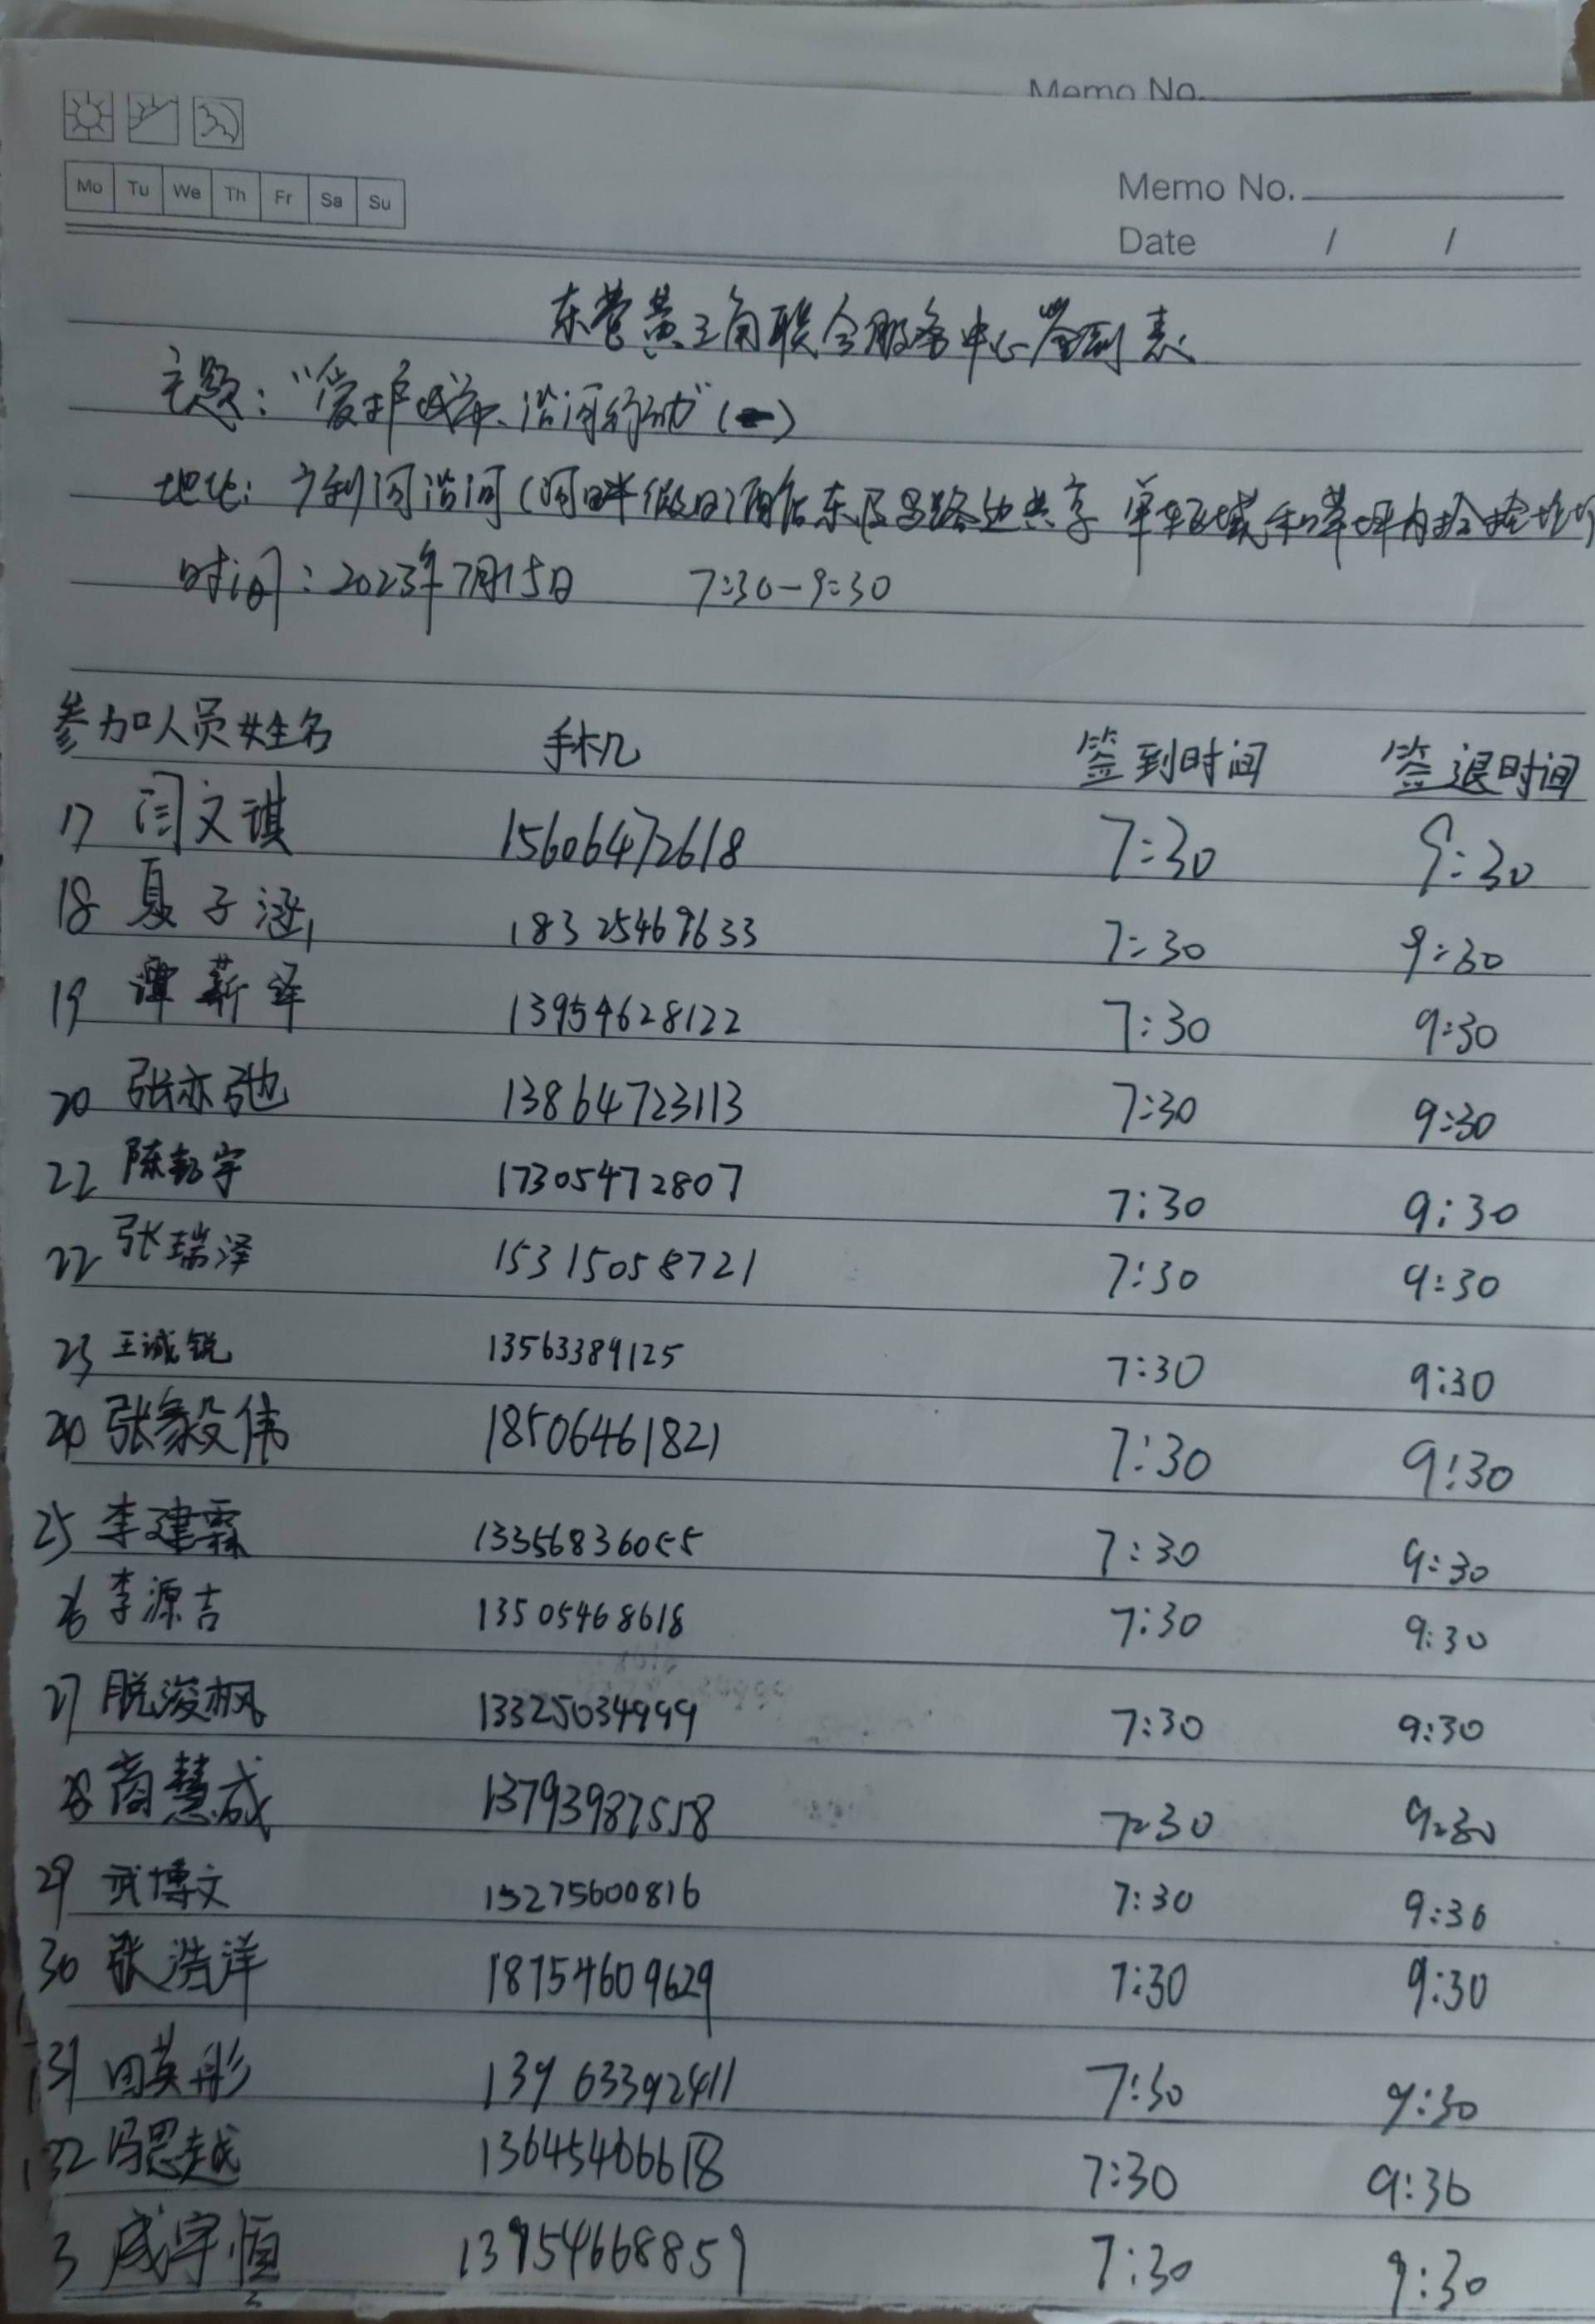 Memo No.
Mo Tu We Th Fr Sa Su
Memo No.
Date / /
东营黄三角联合服务中心签到表
主题：“爱护城市、沿河行动”（一）
地址：广利河沿河（河畔假日酒店东及路边共享单车区域和草坪内捡拾垃圾
时间：2023年7月15日 7:30-9:30
参加人员姓名 手机 签到时间 签退时间
17 闫文琪 15606472618 7:30 9:30
18 夏子涵 18325469633 7:30 9:30
19 谭薪泽 13954628122 7:30 9:30
20 张亦弛 13864723113 7:30 9:30
22 陈宇 17305472807 7:30 9:30
22 张瑞泽 15315058721 7:30 9:30
23 王诚锐 13563389125 7:30 9:30
24 张家毅伟 18506461821 7:30 9:30
25 李建霖 13356836055 7:30 9:30
26 李源吉 13505468618 7:30 9:30
27 脱浚枫 13325034999 7:30 9:30
28 商慧成 13793987558 7:30 9:30
29 武博文 15275600816 7:30 9:30
30 张浩洋 18754609629 7:30 9:30
31 田英彤 13963392411 7:30 9:30
32 冯思越 13645466618 7:30 9:30
3 成宇恒 13954668859 7:30 9:30